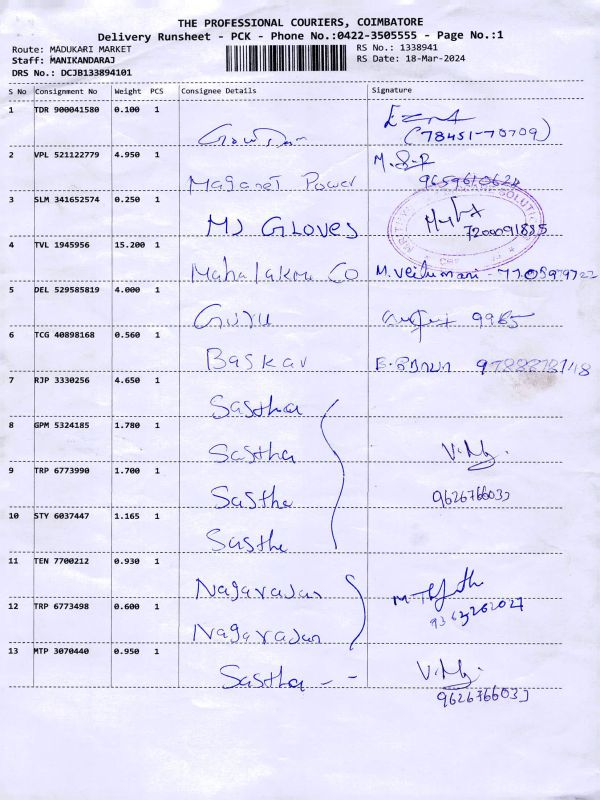 THE PROFESSIONAL COURIERS, COIMBATORE
Delivery Runsheet - PCK - Phone No.:0422-3505555 - Page No.:1
Route: MADUKARI MARKET
Staff: MANIKANDARAJ
DRS No.: DCJB133894101
RS No.: 1338941
RS Date: 18-Mar-2024
S No Consignment No Weight PCS Consignee Details Signature
1 TDR 900041580 0.100 1 (78451-70709)
2 VPL 521122779 4.950 1 Maganet Power M.S.R
3 SLM 341652574 0.250 1 MJ GLOVES 7200091885
4 TVL 1945956 15.200 1 Mahalakmi Co
5 DEL 529585819 4.000 1 Guru 9985
6 TCG 40898168 0.560 1 Baskar
7 RJP 3330256 4.650 1 Sastha
8 GPM 5324185 1.780 1 Sastha
9 TRP 6773990 1.700 1 Sastha
10 STY 6037447 1.165 1 Sastha
11 TEN 7700212 0.930 1 Nagarajan
12 TRP 6773498 0.600 1 Nagarajan
13 MTP 3070440 0.950 1 Sastha